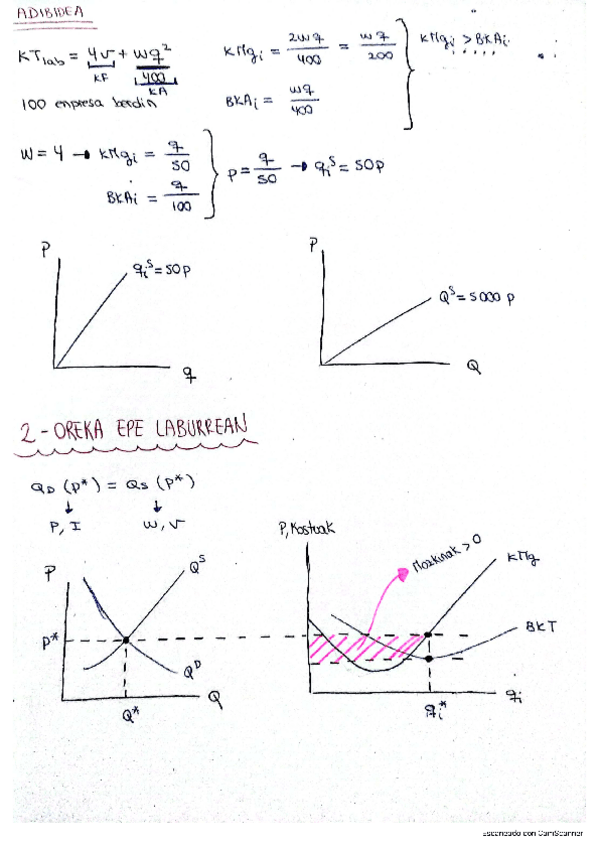 ADIBIDEA
KTlab = 4v + wq²/400
KF KA
100 enpresa berdin
KMgi = 2wq/400 = wq/200
BKAi = wq/400
KMgi > BKAi
W = 4 → KMgi = q/50
BKAi = q/100
P = q/50 → qiˢ = 50p
P
qiˢ = 50p
q
P
Qˢ = 5000 p
Q
2 - OREKA EPE LABURREAN
QD (p*) = QS (p*)
↓ ↓
P, I W, v
P
Qˢ
P*
Qᴰ
Q
Q*
P, Kostuak
Mozkinak > 0
KMg
BKT
qi*
qi
Escaneado con CamScanner